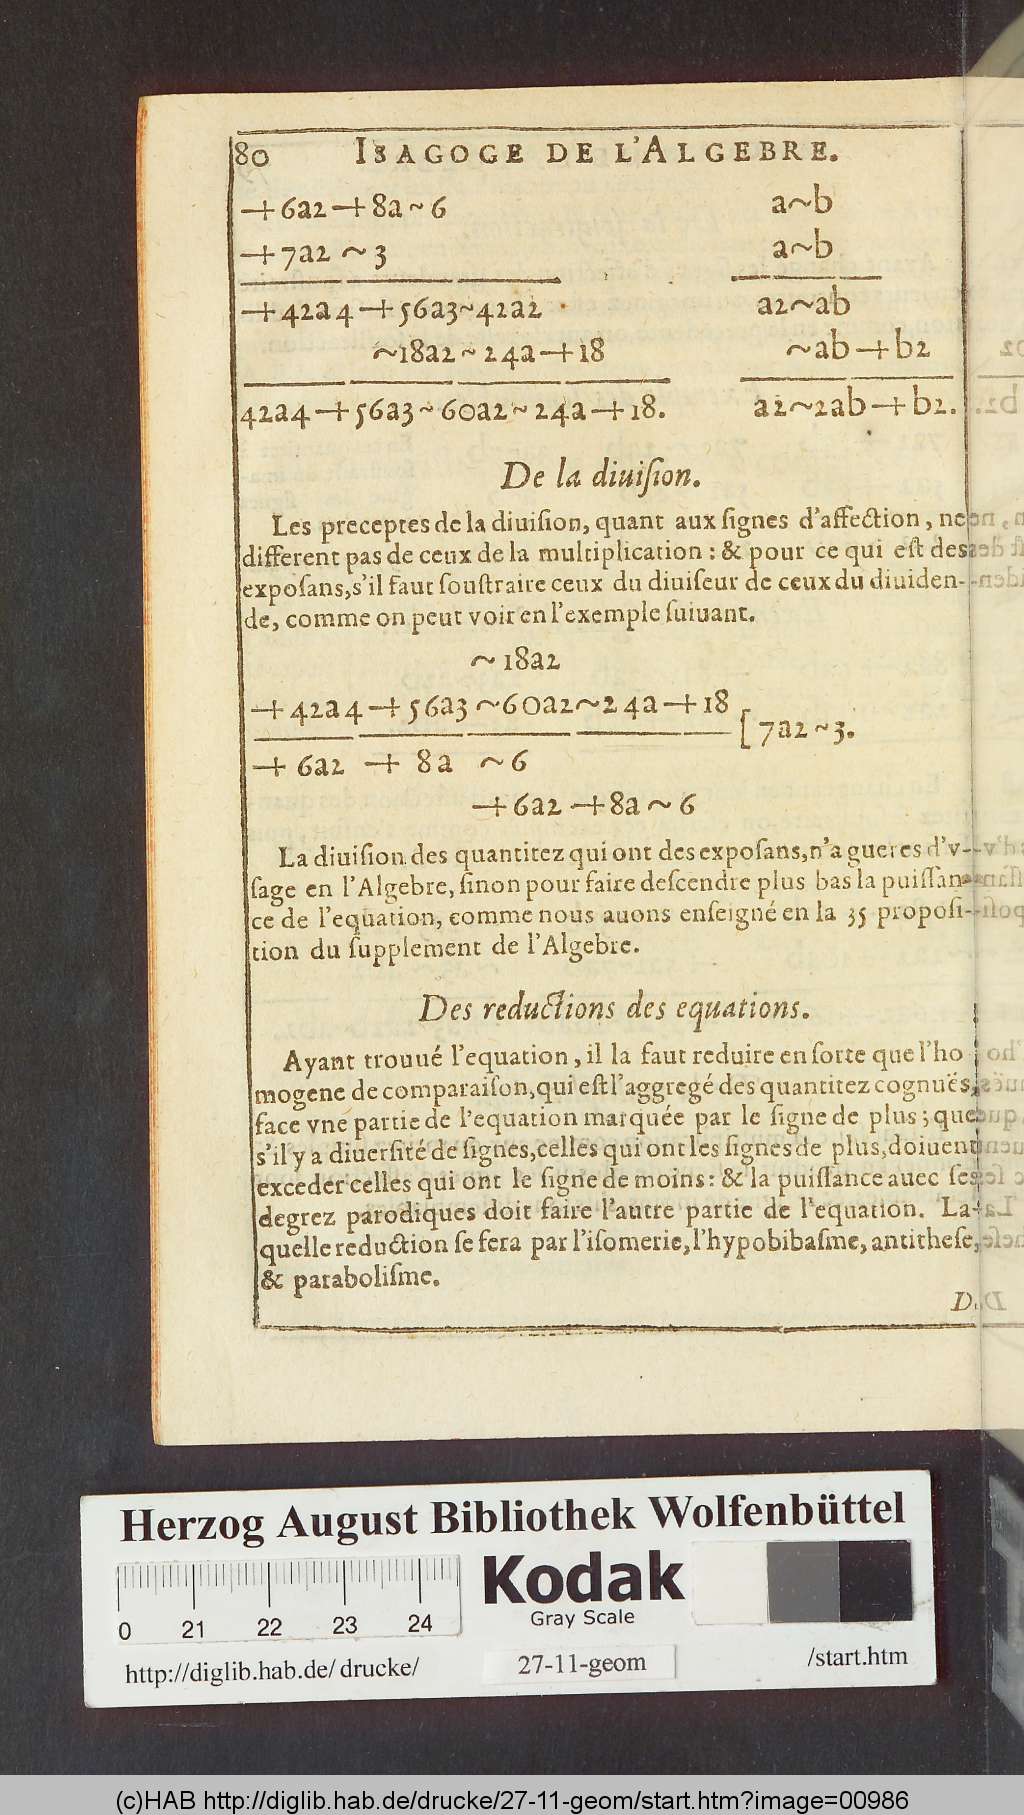 80 ISAGOGE DE L'ALGEBRE.
+6a2+8a~6 a~b
+7a2 ~3 a~b
+42a4+56a3~42a2 a2~ab
~18a2~24a+18 ~ab+b2
42a4+56a3~60a2~24a+18. a2~2ab+b2.
De la diuiſion.
Les preceptes de la diuiſion, quant aux ſignes d'affection, ne
different pas de ceux de la multiplication : & pour ce qui eſt des
expoſans,s'il faut ſouſtraire ceux du diuiſeur de ceux du diuiden-
de, comme on peut voir en l'exemple ſuiuant.
~18a2
+42a4+56a3~60a2~24a+18 [7a2~3.
+ 6a2 + 8a ~6
+6a2+8a~6
La diuiſion des quantitez qui ont des expoſans,n'a gueres d'v-
ſage en l'Algebre, ſinon pour faire deſcendre plus bas la puiſſan-
ce de l'equation, comme nous auons enſeigné en la 35 propoſi-
tion du ſupplement de l'Algebre.
Des reductions des equations.
Ayant trouué l'equation, il la faut reduire en ſorte que l'ho
mogene de comparaiſon,qui eſt l'aggregé des quantitez cognuës,
face vne partie de l'equation marquée par le ſigne de plus; que
s'il y a diuerſité de ſignes,celles qui ont les ſignes de plus,doiuent
exceder celles qui ont le ſigne de moins: & la puiſſance auec ſes
degrez parodiques doit faire l'autre partie de l'equation. La-
quelle reduction ſe fera par l'iſomerie,l'hypobibaſme, antitheſe,
& paraboliſme.
D
Herzog August Bibliothek Wolfenbüttel
Kodak
Gray Scale
0 21 22 23 24
http://diglib.hab.de/drucke/ 27-11-geom /start.htm
(c)HAB http://diglib.hab.de/drucke/27-11-geom/start.htm?image=00986